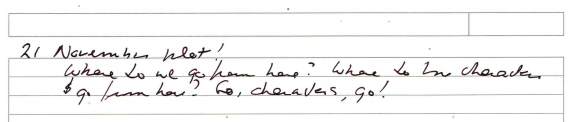 21 November plot!
Where do we go from here? Where do my characters
go from here? Go, characters, go!